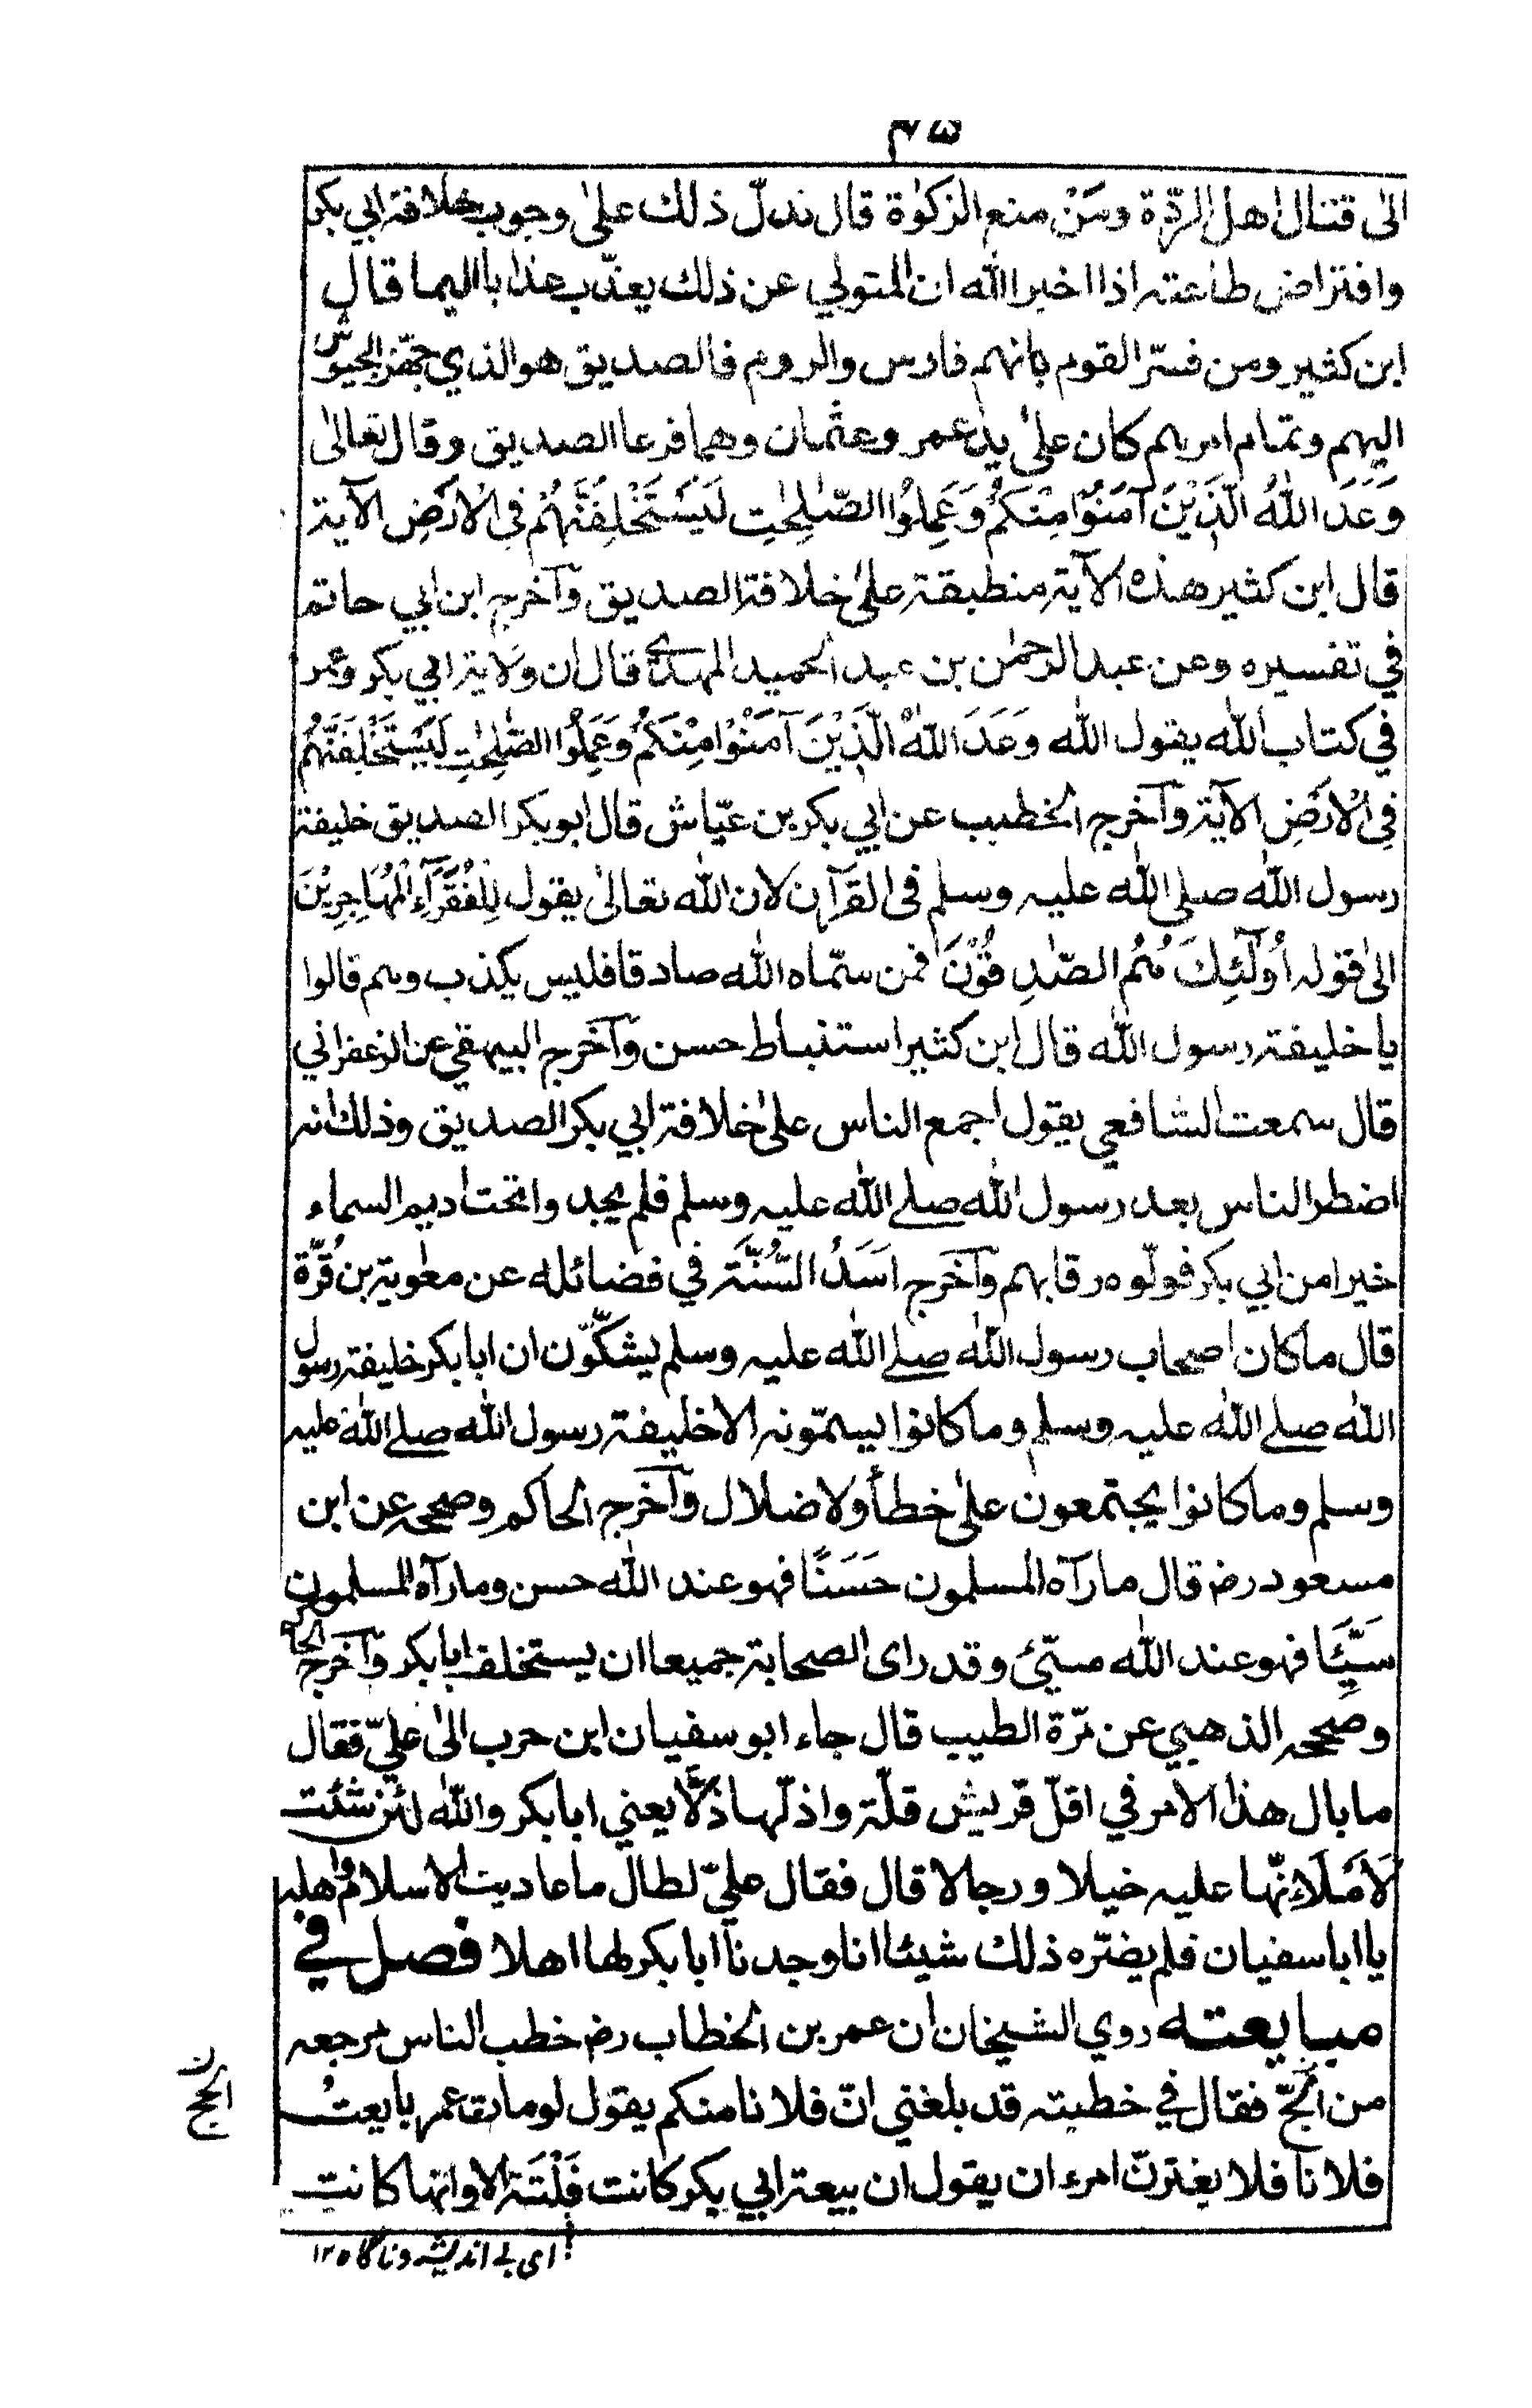 ٤٥
الى قتال اهل الردّة ومَنْ منع الزكوٰة قال فدلّ ذلك علىٰ وجوب خلافة ابي بكر
وافتراض طاعته اذا اخبر الله ان المتولي عن ذلك يعذّب عذابا اليما قال
ابن كثير ومن فسّر القوم بانهم فارس والروم فالصديق هو الذي جهّز الجيوش
اليهم وتمام امرهم كان علىٰ يد عمر وعثمان وهما فرعا الصديق وقال تعالىٰ
وَعَدَ اللّٰهُ الَّذِيْنَ آمَنُوْا مِنْكُمْ وَعَمِلُوا الصّٰلِحٰتِ لَيَسْتَخْلِفَنَّهُمْ فِي الْاَرْضِ الآية
قال ابن كثير هذه الآية منطبقة علىٰ خلافة الصديق وآخرج ابن ابي حاتم
في تفسيره وعن عبد الرحمٰن بن عبد الحميد المهدي قال ان ولاية ابي بكر وعمر
في كتاب الله يقول الله وَعَدَ اللّٰهُ الَّذِيْنَ آمَنُوْا مِنْكُمْ وَعَمِلُوا الصّٰلِحٰتِ لَيَسْتَخْلِفَنَّهُمْ
فِي الْاَرْضِ الآية وآخرج الخطيب عن ابي بكر بن عيّاش قال ابو بكر الصديق خليفة
رسول الله صلى الله عليه وسلم فى القرآن لان الله تعالىٰ يقول لِلْفُقَرَآءِ الْمُهَاجِرِيْنَ
الىٰ قوله أُولٰٓئِكَ هُمُ الصّٰدِقُوْنَ فمن سمّاه الله صادقا فليس يكذب وهم قالوا
يا خليفة رسول الله قال ابن كثير استنباط حسن وآخرج البيهقي عن الزعفراني
قال سمعت الشافعي يقول اجمع الناس علىٰ خلافة ابي بكر الصديق وذلك انه
اضطر الناس بعد رسول الله صلے الله عليه وسلم فلم يجدوا تحت اديم السماء
خيرا من ابي بكر فولّوه رقابهم وآخرج اَسَدُ السُّنَّة في فضائله عن معٰوية بن قُرّة
قال ما كان اصحاب رسول الله صلے الله عليه وسلم يشكّون ان ابا بكر خليفة رسول
الله صلے الله عليه وسلم وما كانوا يسمّونه الا خليفة رسول الله صلے الله عليه
وسلم وما كانوا يجتمعون علىٰ خطأ ولا ضلال وآخرج الحاكم وصححه عن ابن
مسعود رض قال ما رآه المسلمون حَسَنًا فهو عند الله حسن وما رآه المسلمون
سَيِّئًا فهو عند الله سيّئ وقد راى الصحابة جميعا ان يستخلف ابا بكر وآخرج الحاكم
وصححه الذهبي عن مرّة الطيب قال جاء ابو سفيان ابن حرب الىٰ عليّ فقال
ما بال هذا الامر في اقلّ قريش قلّة واذلّها ذلّا يعني ابا بكر والله لئن شئت
لَاَمْلَاَنّها عليه خيلا ورجالا قال فقال عليّ لطال ما عاديت الاسلام واهله
يا ابا سفيان فلم يضرّه ذلك شيئا انا وجدنا ابا بكر لها اهلا فصل في
مبايعته روي الشيخان ان عمر بن الخطاب رض خطب الناس مرجعه
من الحجّ فقال في خطبته قد بلغني انّ فلانا منكم يقول لو مات عمر بايعتُ
فلانا فلا يغترنّ امرء ان يقول ان بيعة ابي بكر كانت فَلْتَة الا وانها كانت
اى بے اندیشہ و ناگاه ۱۲
ن
الحج